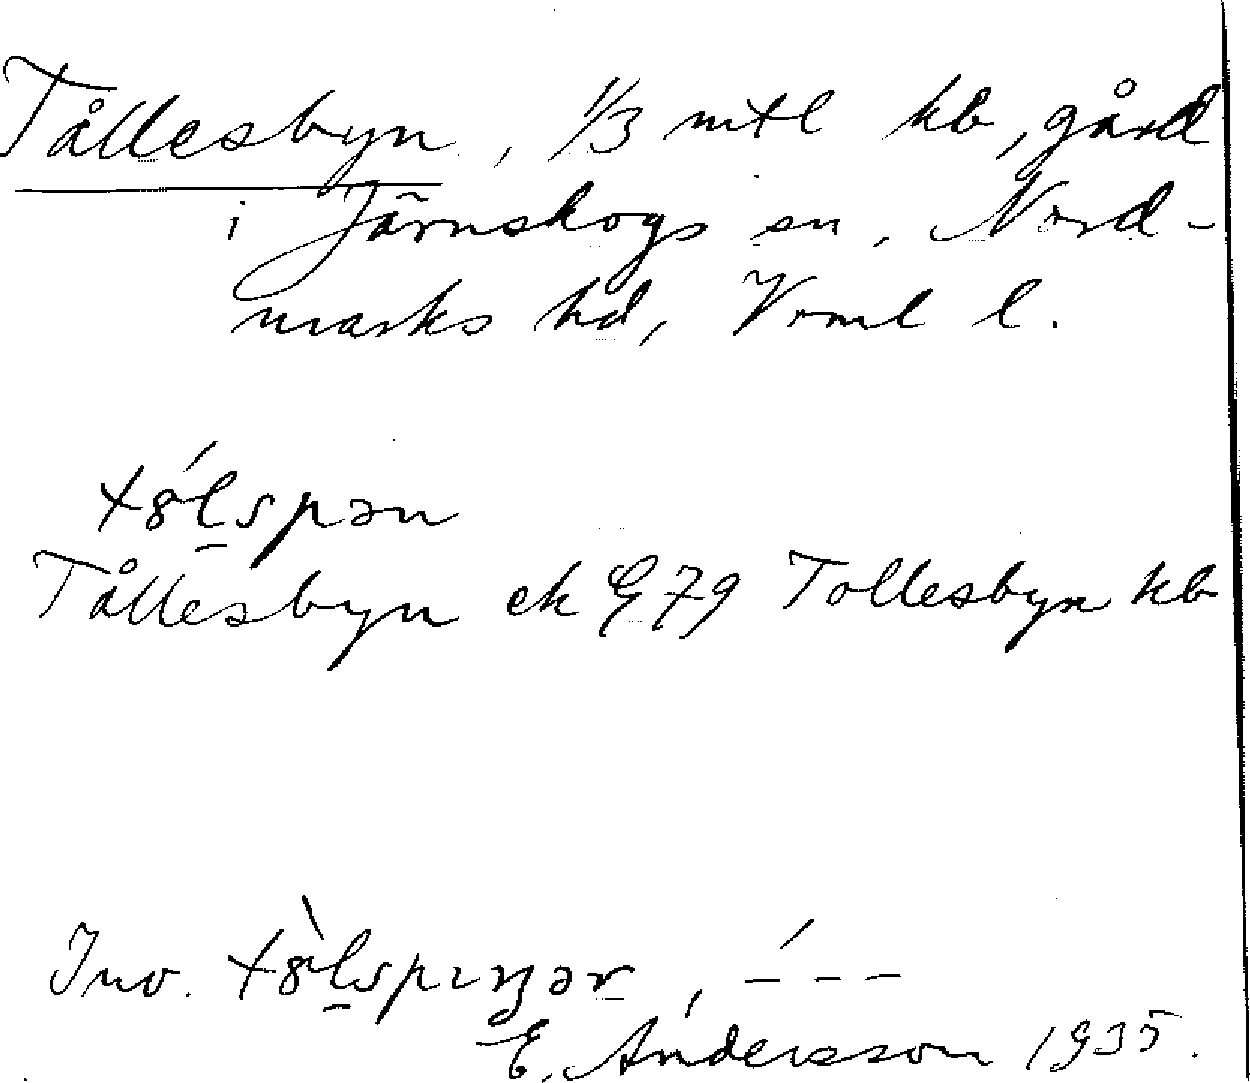 Tållesbyn, 1/3 mtl kb, gård
i Järnskogs sn, Nord-
marks hd, Vrml l.
Tållesbyn ek G 79 Tollesbyn kb
Inv.
E. Andersson 1935.